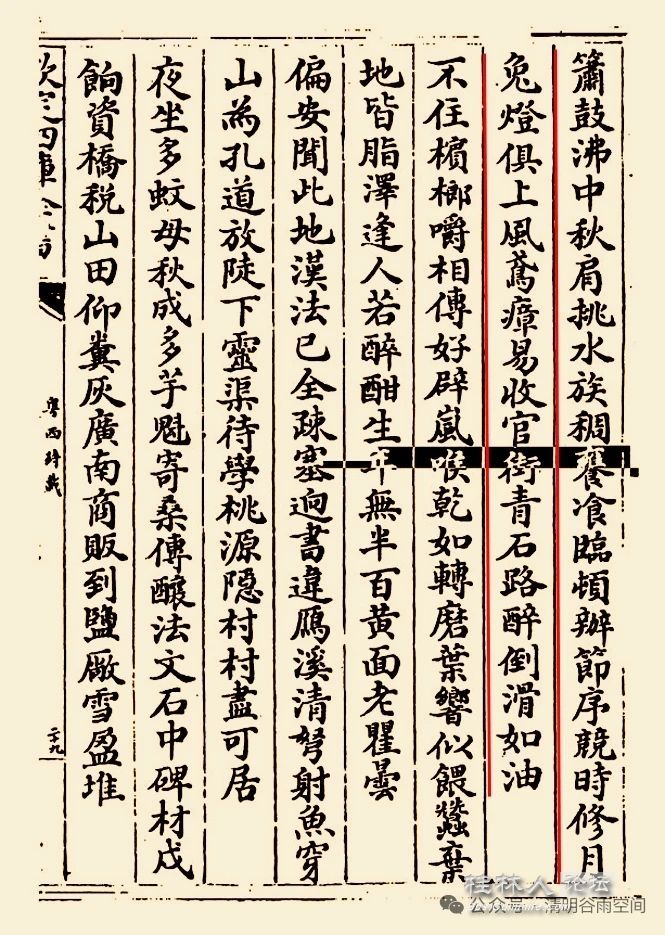 簫鼓沸中秋肩挑水族稠饔飡臨頓辦節序競時修月
兔燈俱上風鳶瘴易收官街青石路醉倒滑如油
不住檳榔嚼相傳好辟嵐喉乾如轉磨葉響似餵蠶棄
地皆脂澤逢人若醉酣生年無半百黄面老瞿曇
偏安聞此地漢法已全疎塞逈書違鴈溪清弩射魚穿
山為孔道放陡下靈渠待學桃源隱村村盡可居
夜坐多蚊母秋成多芋魁寄桑傳釀法文石中碑材戍
餉資橋税山田仰糞灰廣南商販到鹽廠雪盈堆
欽定四庫全書
粤西詩載
桂林人论坛
公众号 · 清明谷雨空间